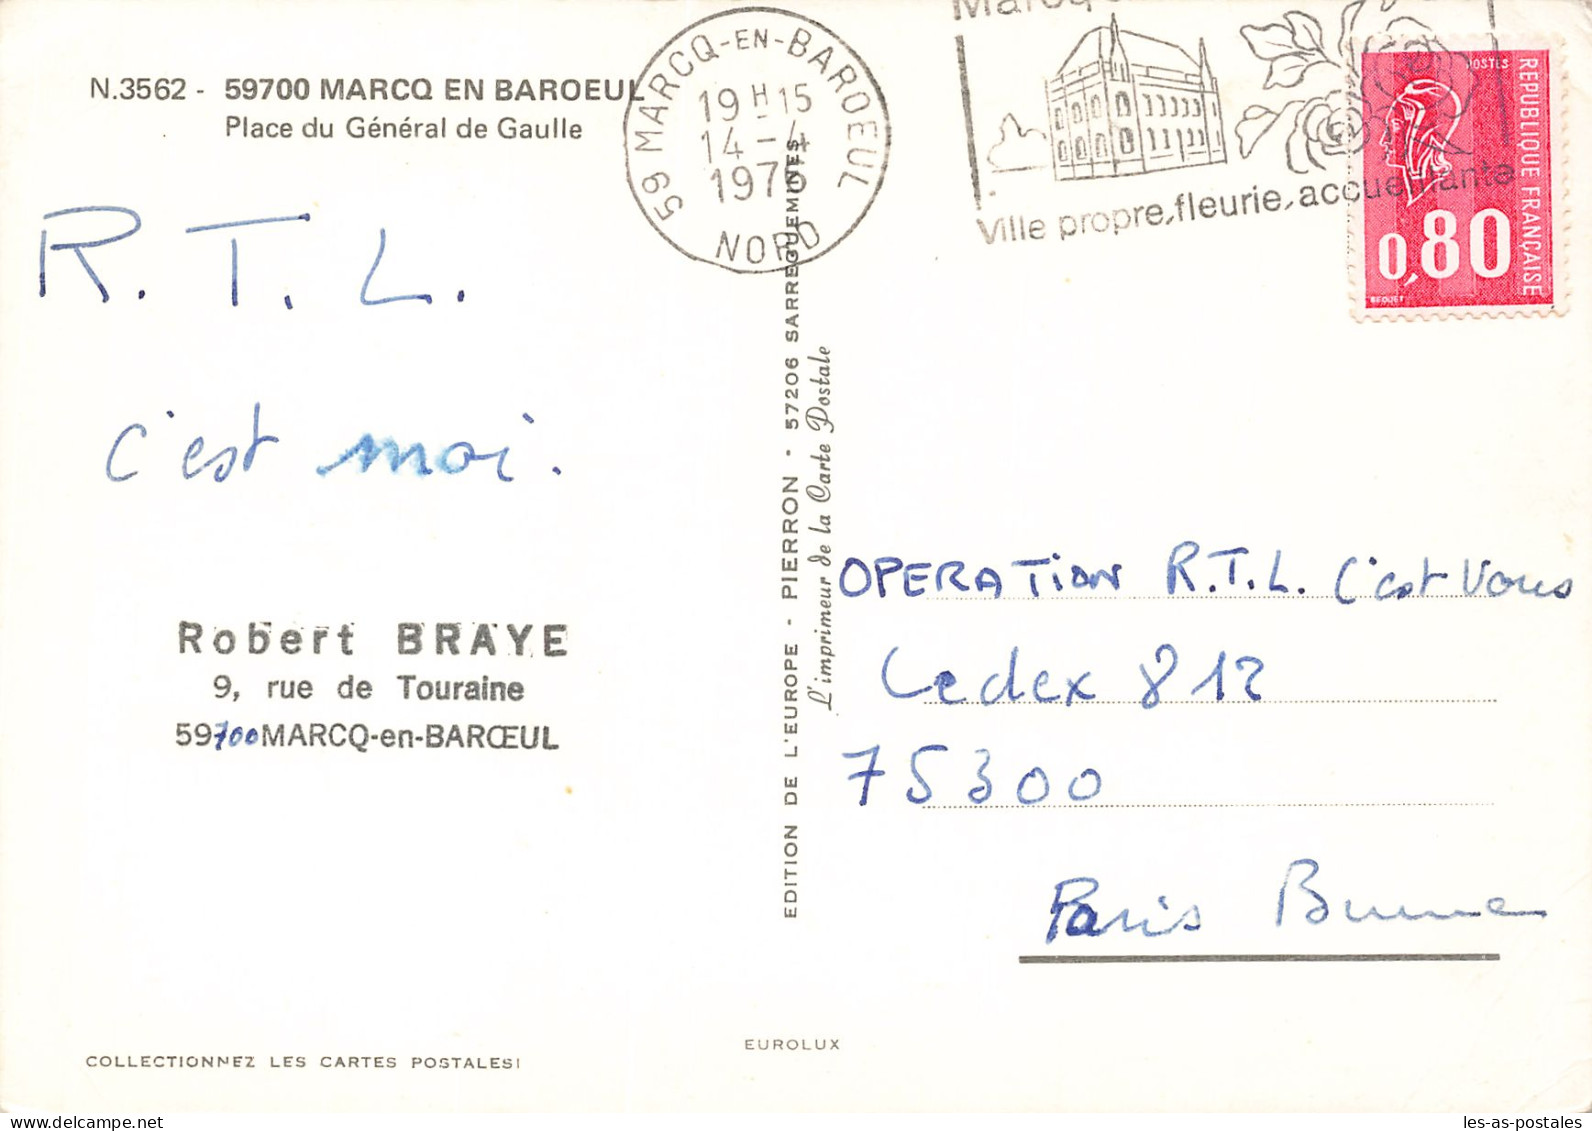 N.3562 - 59700 MARCQ EN BAROEUL
Place du Général de Gaulle
59 MARCQ-EN-BAROEUL
19 H 15
14 - 4
1976
NORD
Ville propre, fleurie, accueillante
POSTES
REPUBLIQUE FRANÇAISE
0,80
BEQUET
R. T. L.
c'est moi.
Robert BRAYE
9, rue de Touraine
59700 MARCQ-en-BARŒUL
EDITION DE L'EUROPE - PIERRON - 57206 SARREGUEMINES
L'imprimeur de la Carte Postale
OPERATION R.T.L. C'est Vous
Cedex 812
75300
Paris Brune
COLLECTIONNEZ LES CARTES POSTALES!
EUROLUX
les-as-postales